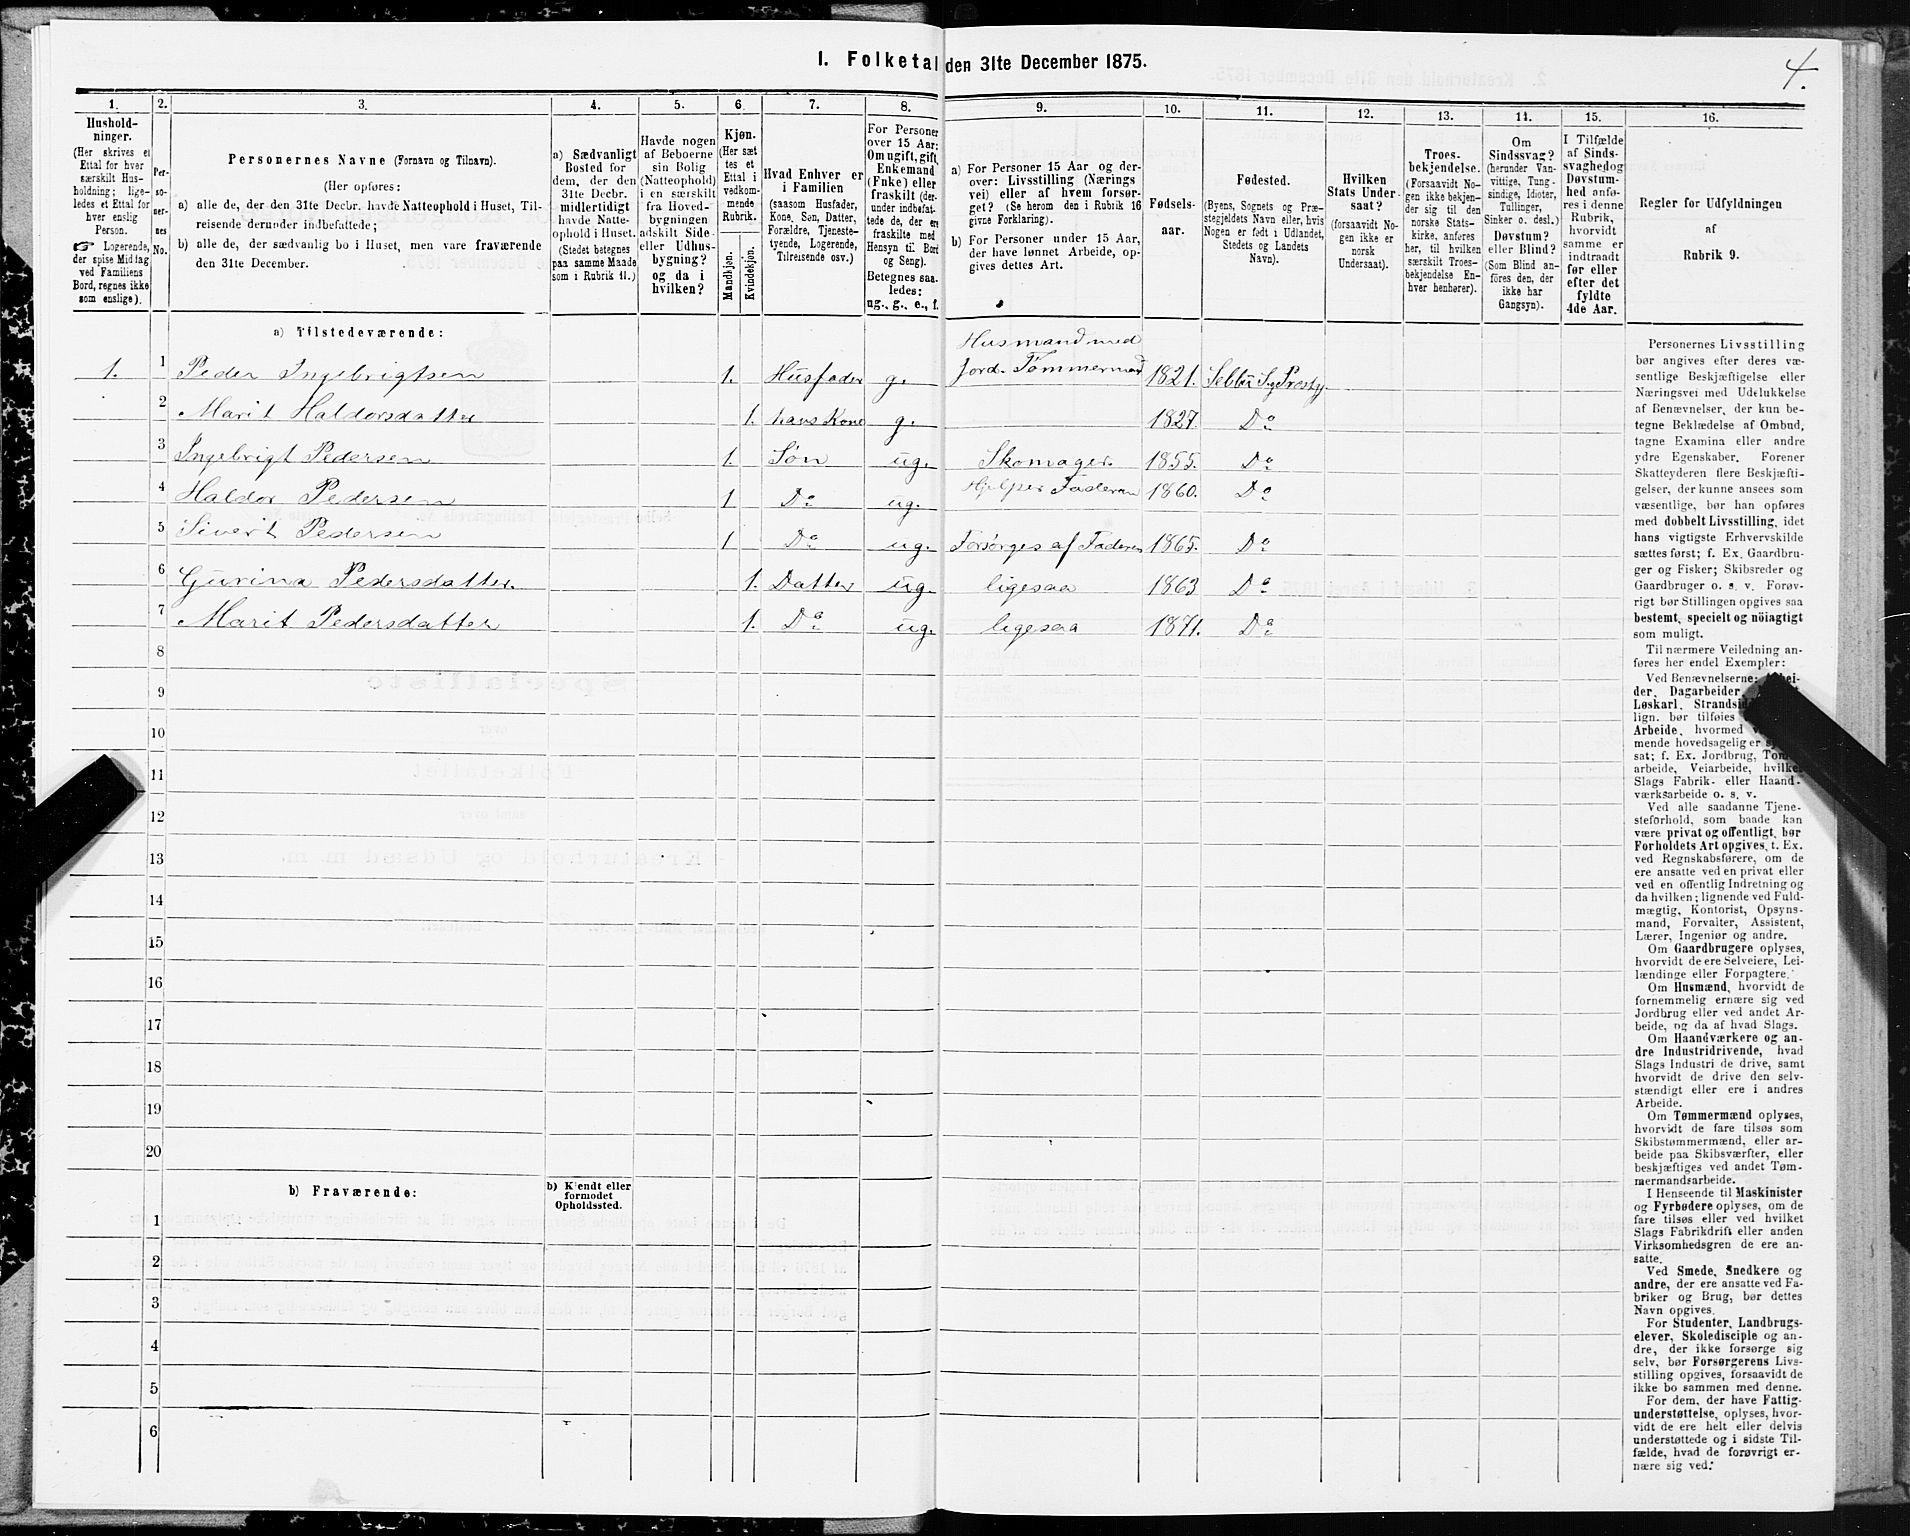 1. Folketal den 31te December 1875.
4.
1. 2. 3. 4. 5. 6. 7. 8. 9. 10. 11. 12. 13. 14. 15. 16.
Hushold-
ninger.
(Her skrives et
Ettal for hver
særskilt Hus-
holdning; lige-
ledes et Ettal for
hver enslig
Person.
☞ Logerende,
der spise Middag
ved Familiens
Bord, regnes ikke
som enslige).
Per-
so-
ner-
nes
No.
Personernes Navne (Fornavn og Tilnavn).
(Her opføres:
a) alle de, der den 31te Decbr. havde Natteophold i Huset, Til-
reisende derunder indbefattede;
b) alle de, der sædvanlig bo i Huset, men vare fraværende
den 31te December.
a) Sædvanligt
Bosted for
dem, der den
31te Decbr.
midlertidigt
havde Natte-
ophold i Huset.
(Stedet betegnes
paa samme Maade
som i Rubrik 11.)
Havde nogen
af Beboerne
sin Bolig
(Natteophold)
i en særskilt
fra Hoved-
bygningen
adskilt Side-
eller Udhus-
bygning?
og da i
hvilken?
Kjøn.
(Her sæt
tes et
Ettal i
vedkom-
mende
Rubrik.
Mandkjøn.
Kvindekjøn.
Hvad Enhver er
i Familien
(saasom Husfader,
Kone, Søn, Datter,
Forældre, Tjeneste-
tyende, Logerende,
Tilreisende osv.)
For Personer
over 15 Aar:
Om ugift, gift,
Enkemand
(Enke) eller
fraskilt (der-
under indbefat-
tede de, der ere
fraskilte med
Hensyn til Bord
og Seng).
Betegnes saa-
ledes:
ug., g., e., f.
a) For Personer 15 Aar og der-
over: Livsstilling (Nærings
vei) eller af hvem forsør-
get? (Se herom den i Rubrik 16
givne Forklaring).
b) For Personer under 15 Aar,
der have lønnet Arbeide, op-
gives dettes Art.
Fødsels-
aar.
Fødested.
(Byens, Sognets og Præ-
stegjeldets Navn eller, hvis
Nogen er født i Udlandet,
Stedets og Landets
Navn).
Hvilken
Stats Under-
saat?
(forsaavidt No-
gen ikke er
norsk
Undersaat).
Troes-
bekjendelse.
(Forsaavidt No-
gen ikke bekjen-
der sig til den
norske Stats-
kirke, anføres
her, til hvilken
særskilt Troes-
bekjendelse En-
hver henhører).
Om
Sindssvag?
(herunder Van-
vittige, Tung-
sindige, Idioter,
Tullinger,
Sinker o. desl.)
Døvstum?
eller Blind?
(Som Blind an-
føres den, der
ikke har
Gangsyn).
I Tilfælde
af Sinds-
svaghed og
Døvstum-
hed anfø-
res i denne
Rubrik,
hvorvidt
samme er
indtraadt
før eller
efter det
fyldte
4de Aar.
Regler for Udfyldningen
af
Rubrik 9.
a) Tilstedeværende:
Husmand med
1. 1 Peder Ingebrigtsen 1. Husfader g. Jord. Tømmermand 1821.
2 Marit Haldorsdatter 1. hans Kone g. 1827. Do
3 Ingebrigt Pedersen 1. Søn ug. Skomager. 1855. Do
4 Haldor Pedersen 1 Do ug. Hjelper Faderen 1860. Do
5 Sivert Pedersen 1 Do ug. Forsørges af Faderen 1865. Do
6 Gurina Pedersdatter. 1. Datter ug. ligesaa 1863 Do
7 Marit Pedersdatter 1. Do ug. ligesaa 1871. Do
8
9
10
11
12
13
14
15
16
17
18
19
20
b) Fraværende:
b) Kjendt eller
formodet
Opholdssted.
1
2
3
4
5
6
Personernes Livsstilling
bør angives efter deres væ-
sentlige Beskjæftigelse eller
Næringsvei med Udelukkelse
af Benævnelser, der kun be-
tegne Beklædelse af Ombud,
tagne Examina eller andre
ydre Egenskaber. Forener
Skatteyderen flere Beskjæfti-
gelser, der kunne ansees som
væsentlige, bør han opføres
med dobbelt Livsstilling, idet
hans vigtigste Erhvervskilde
sættes først; f. Ex. Gaardbru-
ger og Fisker; Skibsreder og
Gaardbruger o. s. v. Forøv-
rigt bør Stillingen opgives saa
bestemt, specielt og nöiagtigt
som muligt.
Til nærmere Veiledning an-
føres her endel Exempler:
Ved Benævnelserne:
der, Dagarbeider,
Løskarl, Strandsid
lign. bør tilføies
Arbeide, hvormed
mende hovedsagelig er
sat; f. Ex. Jordbrug,
arbeide, Veiarbeide, hvilke
Slags Fabrik- eller Haand-
værksarbeide o. s. v.
Ved alle saadanne Tjene-
steforhold, som baade kan
være privat og offentligt, bør
Forholdets Art opgives, t. Ex.
ved Regnskabsførere, om de
ere ansatte ved en privat eller
ved en offentlig Indretning og
da hvilken; lignende ved Fuld-
mægtig, Kontorist, Opsyns-
mand, Forvalter, Assistent,
Lærer, Ingeniør og andre.
Om Gaardbrugere oplyses,
hvorvidt de ere Selveiere, Lei-
lændinge eller Forpagtere.
Om Husmænd, hvorvidt de
fornemmelig ernære sig ved
Jordbrug eller ved andet Ar-
beide, og da af hvad Slags.
Om Haandværkere og an-
dre Industridrivende, hvad
Slags Industri de drive, samt
hvorvidt de drive den selv-
stændigt eller ere i andres
Arbeide.
Om Tømmermænd oplyses,
hvorvidt de fare tilsøs som
Skibstømmermænd, eller ar-
beide paa Skibsværfter, eller
beskjæftiges ved andet Tøm-
mermandsarbeide.
I Henseende til Maskinister
og Fyrbødere oplyses, om de
fare tilsøs eller ved hvilket
Slags Fabrikdrift eller anden
Virksomhedsgren de ere an-
satte.
Ved Smede, Snedkere og
andre, der ere ansatte ved Fa-
briker og Brug, bør dettes
Navn opgives.
For Studenter, Landbrugs-
elever, Skoledisciple og an-
dre, der ikke forsørge sig
selv, bør Forsørgerens Livs-
stilling opgives, forsaavidt de
ikke bo sammen med denne.
For dem, der have Fattig-
understøttelse, oplyses, hvor-
vidt de ere helt eller delvis
understøttede og i sidste Til-
fælde, hvad de forøvrigt er-
nære sig ved.